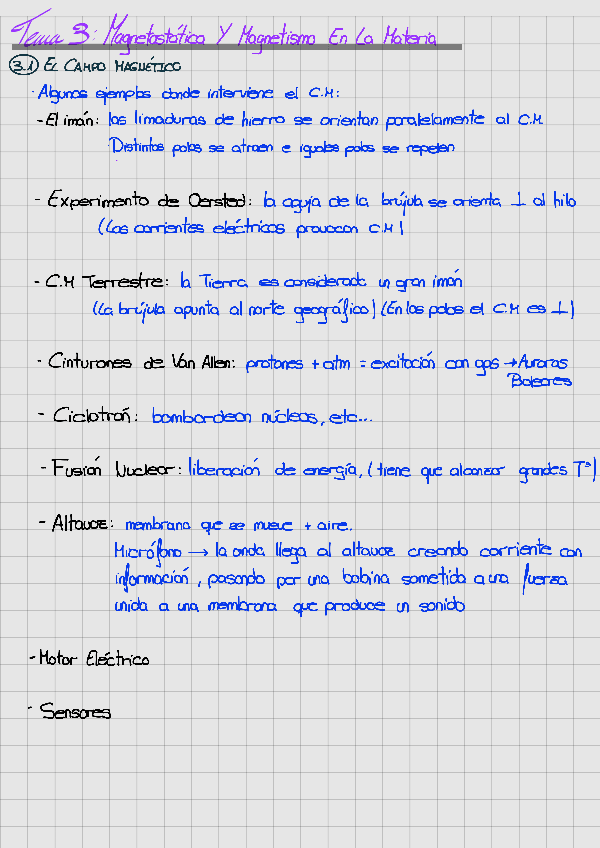 Tema 3: Magnetostática Y Magnetismo En La Materia
3.1 EL CAMPO MAGNÉTICO
· Algunos ejemplos donde interviene el C.M:
- El imán: las limaduras de hierro se orientan paralelamente al C.M
Distintos polos se atraen e iguales polos se repelen
- Experimento de Oersted: la aguja de la brújula se orienta ⊥ al hilo
(Las corrientes eléctricas provocan C.M)
- C.M Terrestre: la Tierra es considerada un gran imán
(La brújula apunta al norte geográfico) (En los polos el C.M es ⊥)
- Cinturones de Van Allen: protones + atm = excitación con gas → Auroras
Boleares
- Ciclotrón: bombardean núcleos, etc...
- Fusión Nuclear: liberación de energía, (tiene que alcanzar grandes Tª)
- Altavoz: membrana que se mueve + aire.
Micrófono → la onda llega al altavoz creando corriente con
información, pasando por una bobina sometida a una fuerza
unida a una membrana que produce un sonido
- Motor Eléctrico
- Sensores